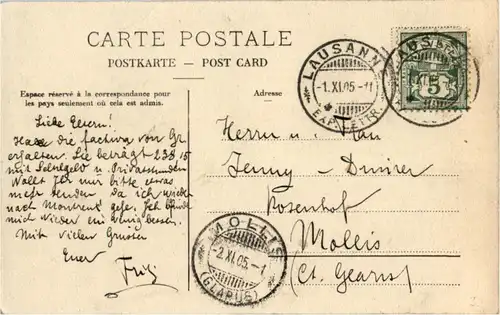 CARTE POSTALE
POSTKARTE — POST CARD
Espace réservé à la correspondance pour
les pays seulement où cela est admis.
Adresse
LAUSANNE
-1.XI.05.-11
EXP. LETTR.
5
Liebe Eltern!
Habe die factura von Gr
erhalten. Sie beträgt
mit Lehrgeld u. Privatstunden
Wollt Ihr mir bitte etwas
mehr senden da ich wieder
nach Montreux gehe. Ich befinde
mich wieder ein wenig besser.
Mit vielen Grüssen
Euer
Fritz
Herrn u. Frau
Jenny - Dinner
Rosenhof
Mollis
(Ct. Glarus)
MOLLIS
-2.XI.05.-1
(GLARUS)